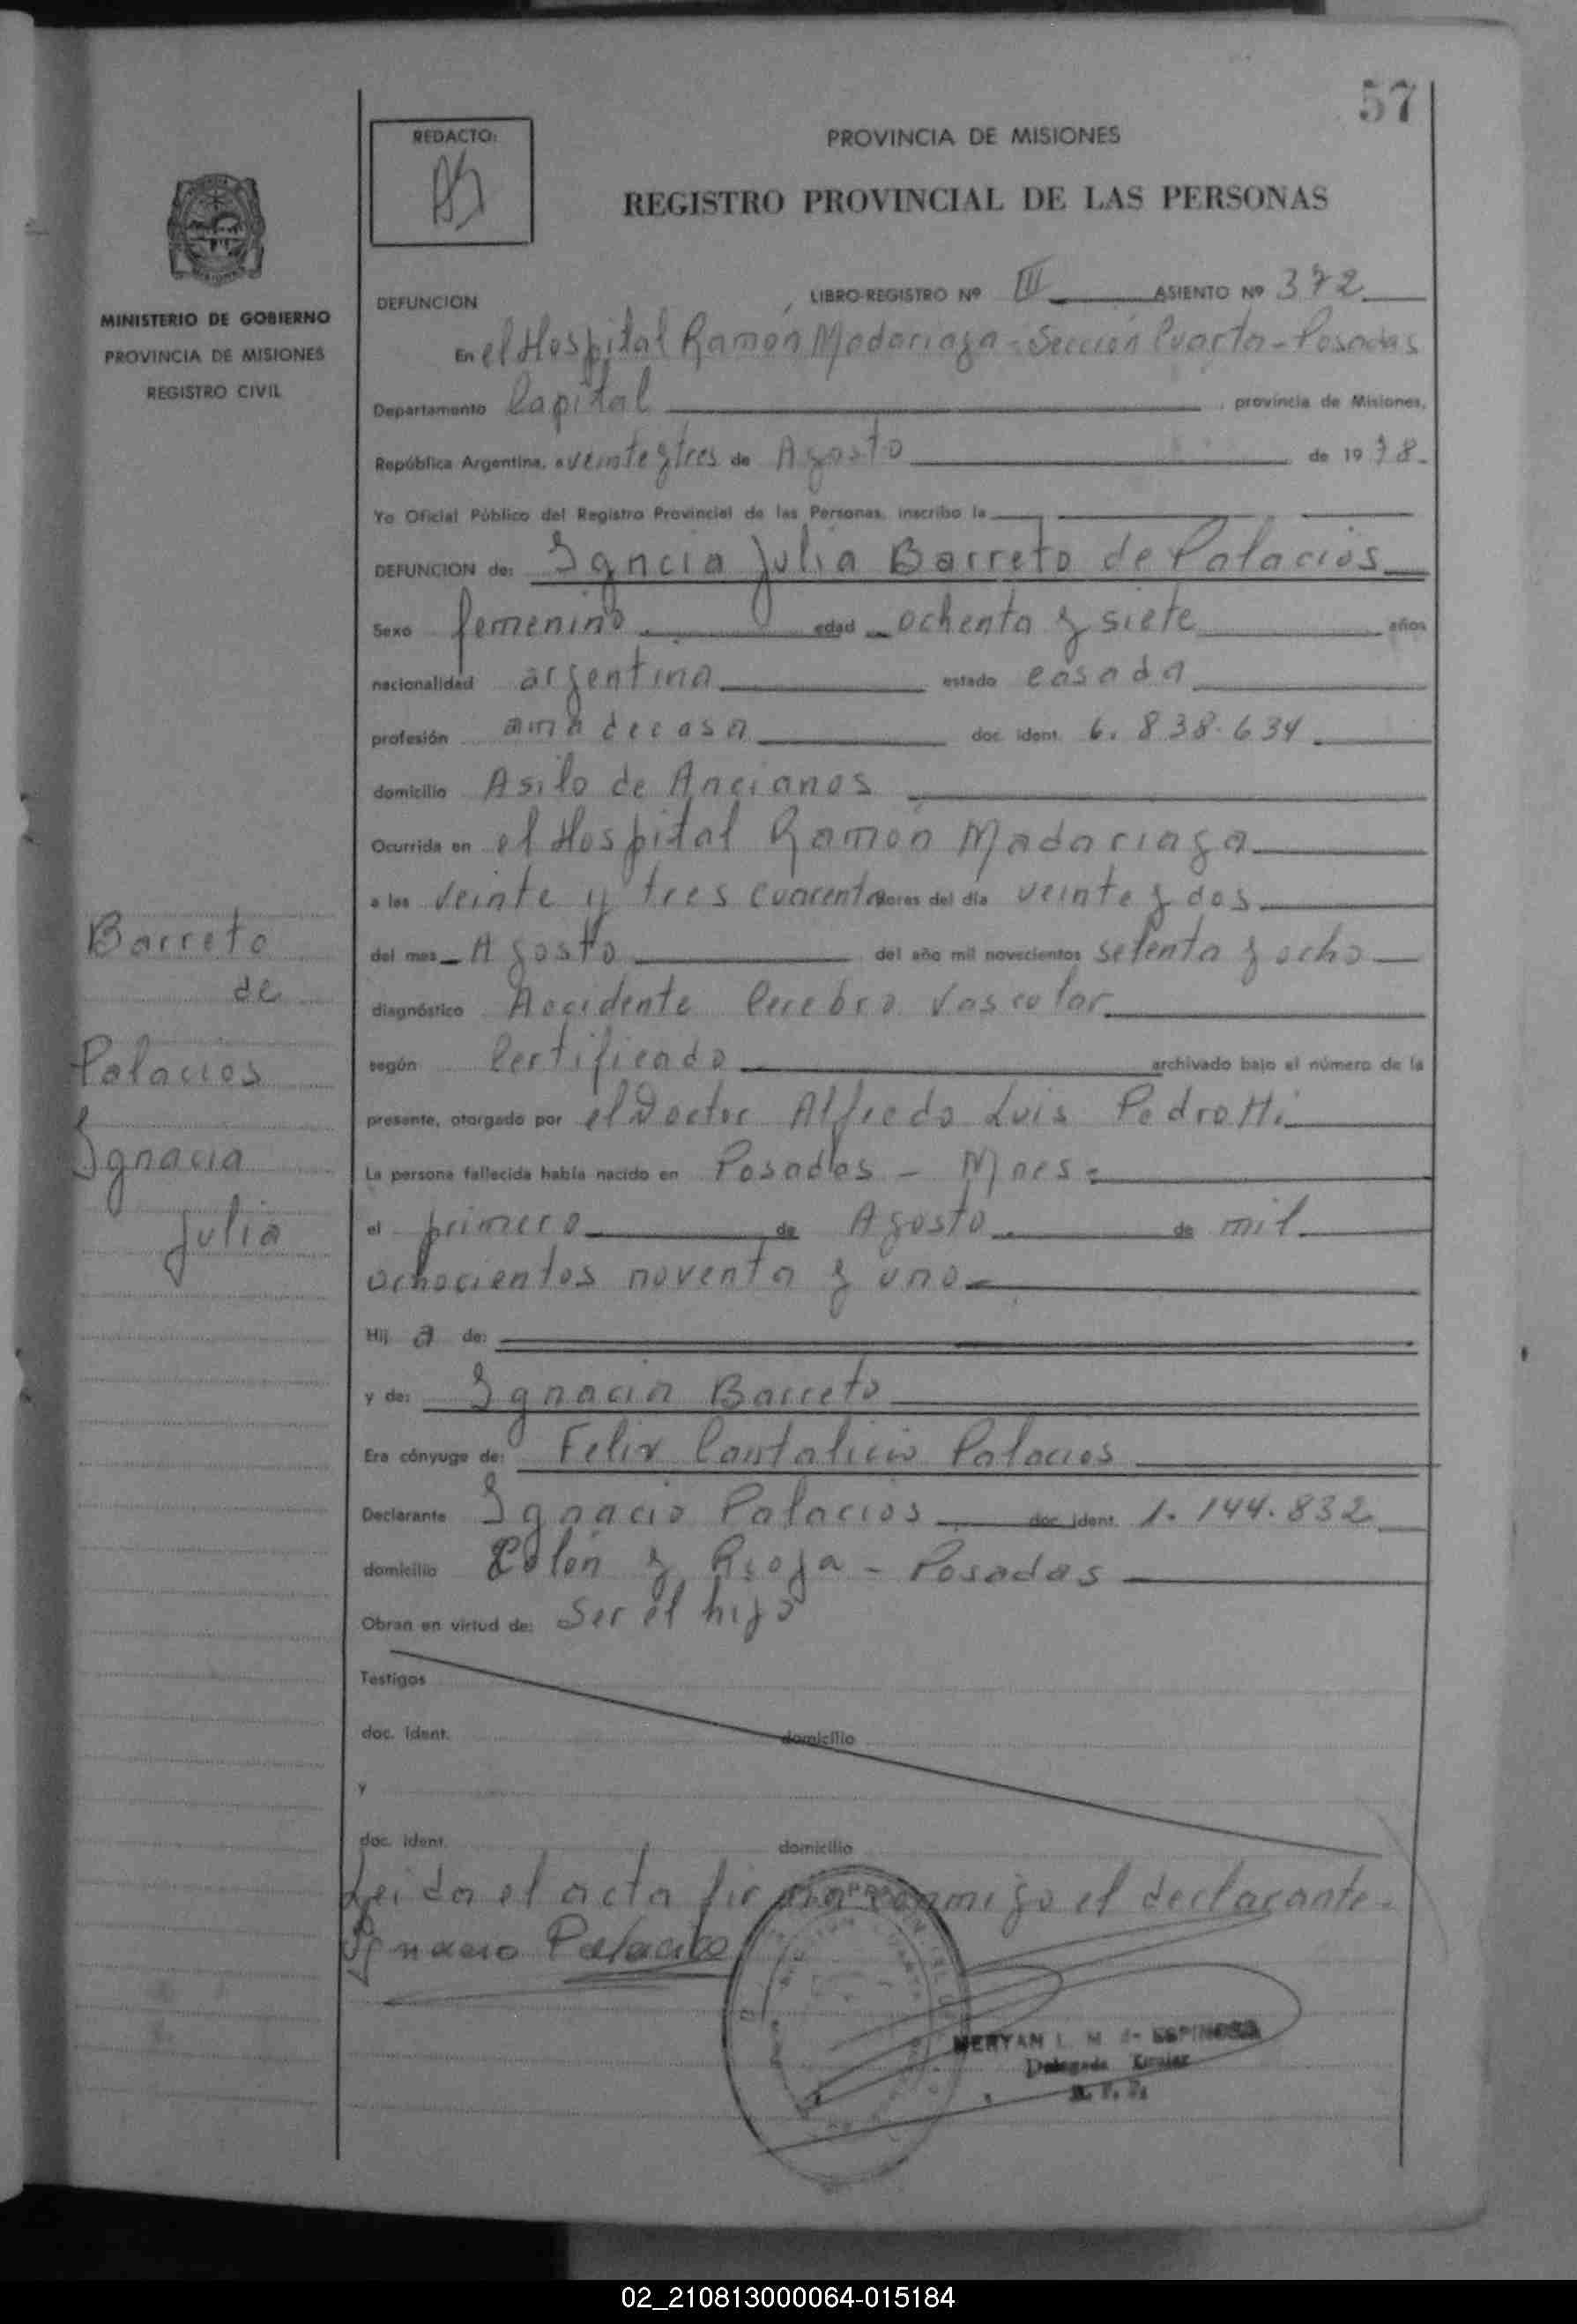 57
REDACTO:
PROVINCIA DE MISIONES
REGISTRO PROVINCIAL DE LAS PERSONAS
MINISTERIO DE GOBIERNO
PROVINCIA DE MISIONES
REGISTRO CIVIL
DEFUNCION LIBRO-REGISTRO Nº III ASIENTO Nº 372
En el Hospital Ramón Madariaga - Sección Cuarta - Posadas
Departamento Capital, provincia de Misiones,
República Argentina, a veinte y tres de Agosto de 1978.
Yo Oficial Público del Registro Provincial de las Personas, inscribo la
DEFUNCION de: Igncia Julia Barreto de Palacios
Sexo femenino edad ochenta y siete años
nacionalidad argentina estado casada
profesión ama de casa doc. ident. 6.838.634
domicilio Asilo de Ancianos
Ocurrida en el Hospital Ramón Madariaga
a las veinte y tres cuarenta horas del día veinte y dos
del mes Agosto del año mil novecientos setenta y ocho
diagnóstico Accidente Cerebro Vascular
según Certificado archivado bajo el número de la
presente, otorgado por el Doctor Alfredo Luis Pedrotti
La persona fallecida había nacido en Posadas - Mnes.
el primero de Agosto de mil
ochocientos noventa y uno
Hij a de:
y de: Ignacia Barreto
Era cónyuge de: Felix Cantalicio Palacios
Declarante Ignacio Palacios doc. ident. 1.144.832
domicilio Colón y Rioja - Posadas
Obran en virtud de: Ser el hijo
Testigos
doc. ident. domicilio
y
doc. ident. domicilio
Leida el acta firma conmigo el declarante.
Ignacio Palacios
MERYAN L. M. de ESPINOSA
Delegada Titular
R. P. P.
Barreto
de
Palacios
Ignacia
Julia
02_210813000064-015184